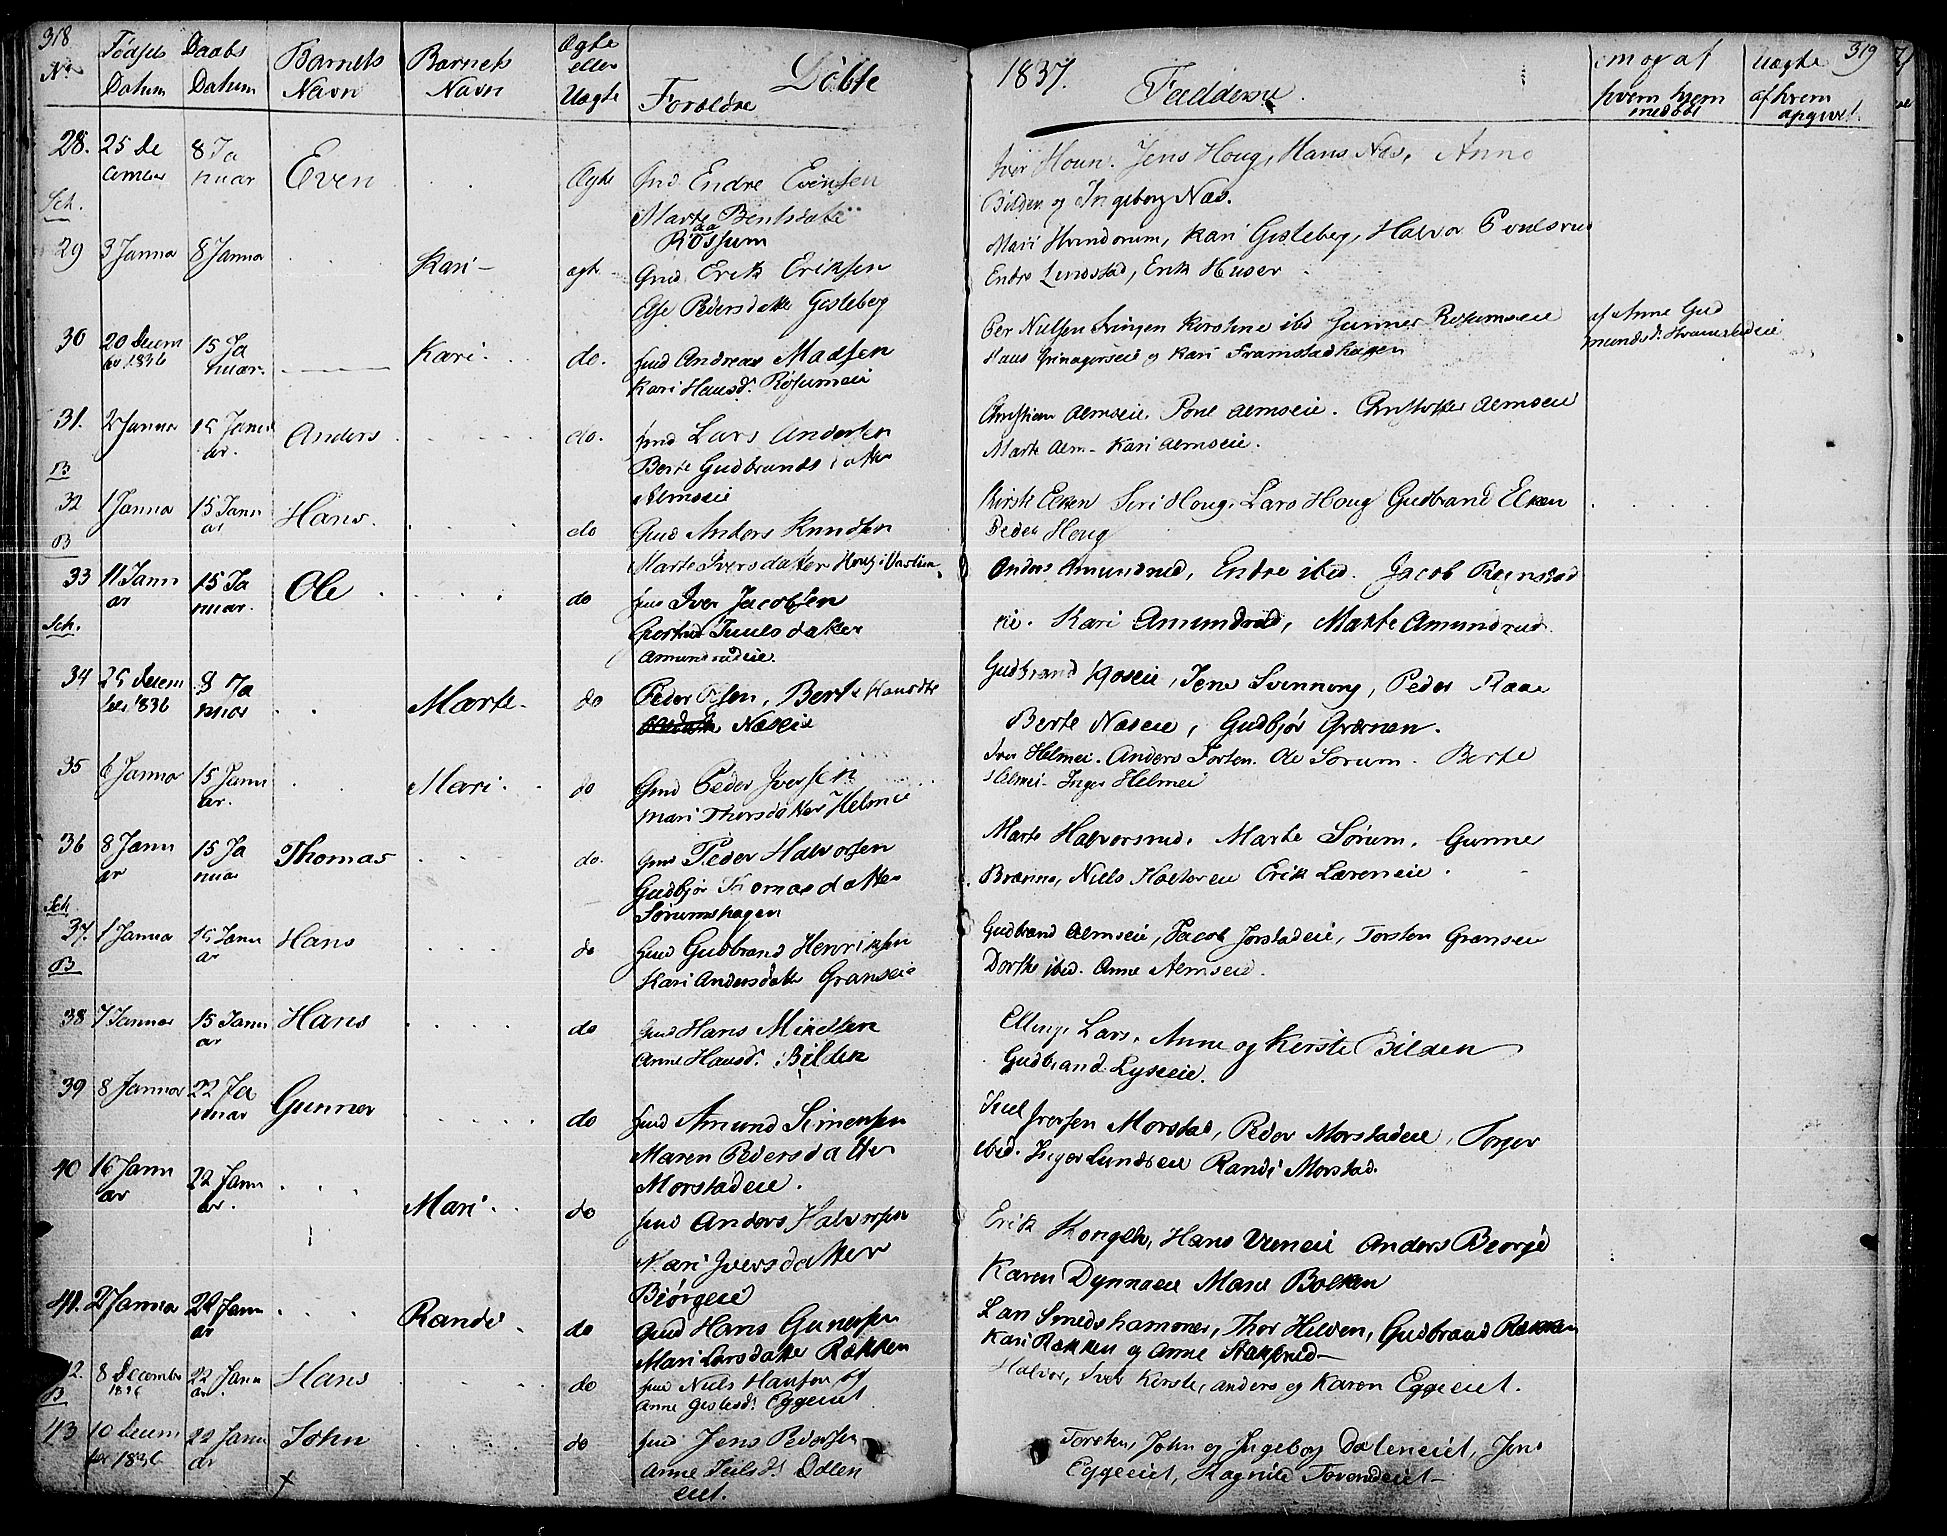 318
No Fødsels Datum Daabs Datum Barnets Navn Barnets Navn Ægte eller Uægte Forældre Døbte
28. 25 De cember 8 Ja nuar Even Ægte Gmd Endre Evensen
Sch. Marte Bentsdatte
Rossum
29 3 Januar 8 Januar Kari ægte Gmd Erik Eriksen
Else Pedersdatte Gisleberg
30 20 Decem ber 1836 15 Ja nuar. Kari do. Gmd Andreas Madsen
Kari Hansd. Rosumeie
31. 2 Januar 15 Janu ar. Anders do. Gmd Lars Andersen
B Berte Gudbrandsdatter
Almseie
32 1 Januar 15 Janu ar Hans. do Gmd Anders Knudsen
B Marte Iversdatter Houg
33 11 Janu ar 15 Ja nuar. Ole do Gmd Iver Jacobsen
Sch. Gertrud Juulsdatter
Amundrudeie.
34 25 Decem ber 1836 8 Ja nuar Marte do Peder Olsen, Berte Hansdtr
Næseie
35 6 Januar 15 Janu ar. Mari. do Gmd Peder Iversen
Mari Thorsdatter Helmeie
36 8 Janu ar 15 Ja nuar Thomas do. Gmd Peder Halvorsen
Gudbjør Thomasdatter
Sch. Sørumshagen
37. 1 Januar 15 Janu ar Hans do Gmd Gudbrand Henriksen
B Kari Andersdatte Granseie
38 7 Januar 15 Janu ar Hans do Gmd Hans Mikelsen
Anne Hansd. Bilden
39 8 Januar 22 Ja nuar Gunner do Gmd Amund Simensen
Maren Pedersdatter
Morstadeie.
40 16 Janu ar 22 Janu ar. Mari. do Gmd Anders Halvorsen
Mari Iversdatter
Biørgeeie
41. 2 Januar 22 Janu ar Randi do Gmd Hans Gunersen
Mari Larsdatte Rækken
42. 8 December 1836 22 Janu ar. Hans do Gmd Niels Hansen og
B Anne Gislesd. Eggeeiet
43 10 Decem ber 1836 22 Janu ar John do Gmd Jens Pedersen
Anne Juulsd. Dælen
eiet.
1837. Faddere. om og af hvem hjem medøbt Uægte af hvem opgivet. 319
Iver Houn. Jens Houg, Hans Næs, Anne
Bilden og Ingeborg Næs.
Mari Hvindorum, Kari Gisleberg, Halvor Poulsrud
Endre Lindstad, Erik Huser
Per Nielsen Svingen Kerstine ibd Gunner Rosumseie af Anne Gud
Hans Grinagerseie og Kari Framstadhagen mundsd. Hvamstadeie
Christian Almseie. Poul Almseie. Christoffer Almseie
Marte Alm - Kari Almseie.
Kirsti Elken Siri Houg. Lars Houg Gudbrand Elken
Peder Houg
Anders Amundrud, Endre ibed. Jacob Rognstad
eie. Kari Amundrud, Marte Amundrud.
Gudbrand Koseie, Jens Svenning, Peder Raae
Berte Næseie, Gudbjør Grærnen.
Iver Helmei. Anders Torten. Ole Sørum. Berte
Helmei. Inger Helmei
Marte Halvorsrud. Marte Sørum. Gunner
Brænna, Niels Holtereie Erik Læreneie.
Gudbrand Almseie, Jacob Jorstadeie, Torsten Granseie
Dorthe ibed. Anne Almseie.
Elling, Lars, Anne og Kerste Bilden
Gudbrand Lyseeie.
Juel Iversen Morstad, Peder Morstadeie, Torger
ibed. Inger Lundseie Randi Morstad.
Erik Kongelh, Hans Vieneie Anders Beorge
Karen Dynnaeie Marie Bolken
Lars Smedshammer, Thor Hilden, Gudbrand Rækken
Kari Rækken og Anne Stakkerud -
Halvor, Iver Kerste, Anders og Karen Eggeeiet.
Torsten, John og Ingeborg Dæleneiet, Jens
Eggeeiet, Ragnild Tovendeiet -